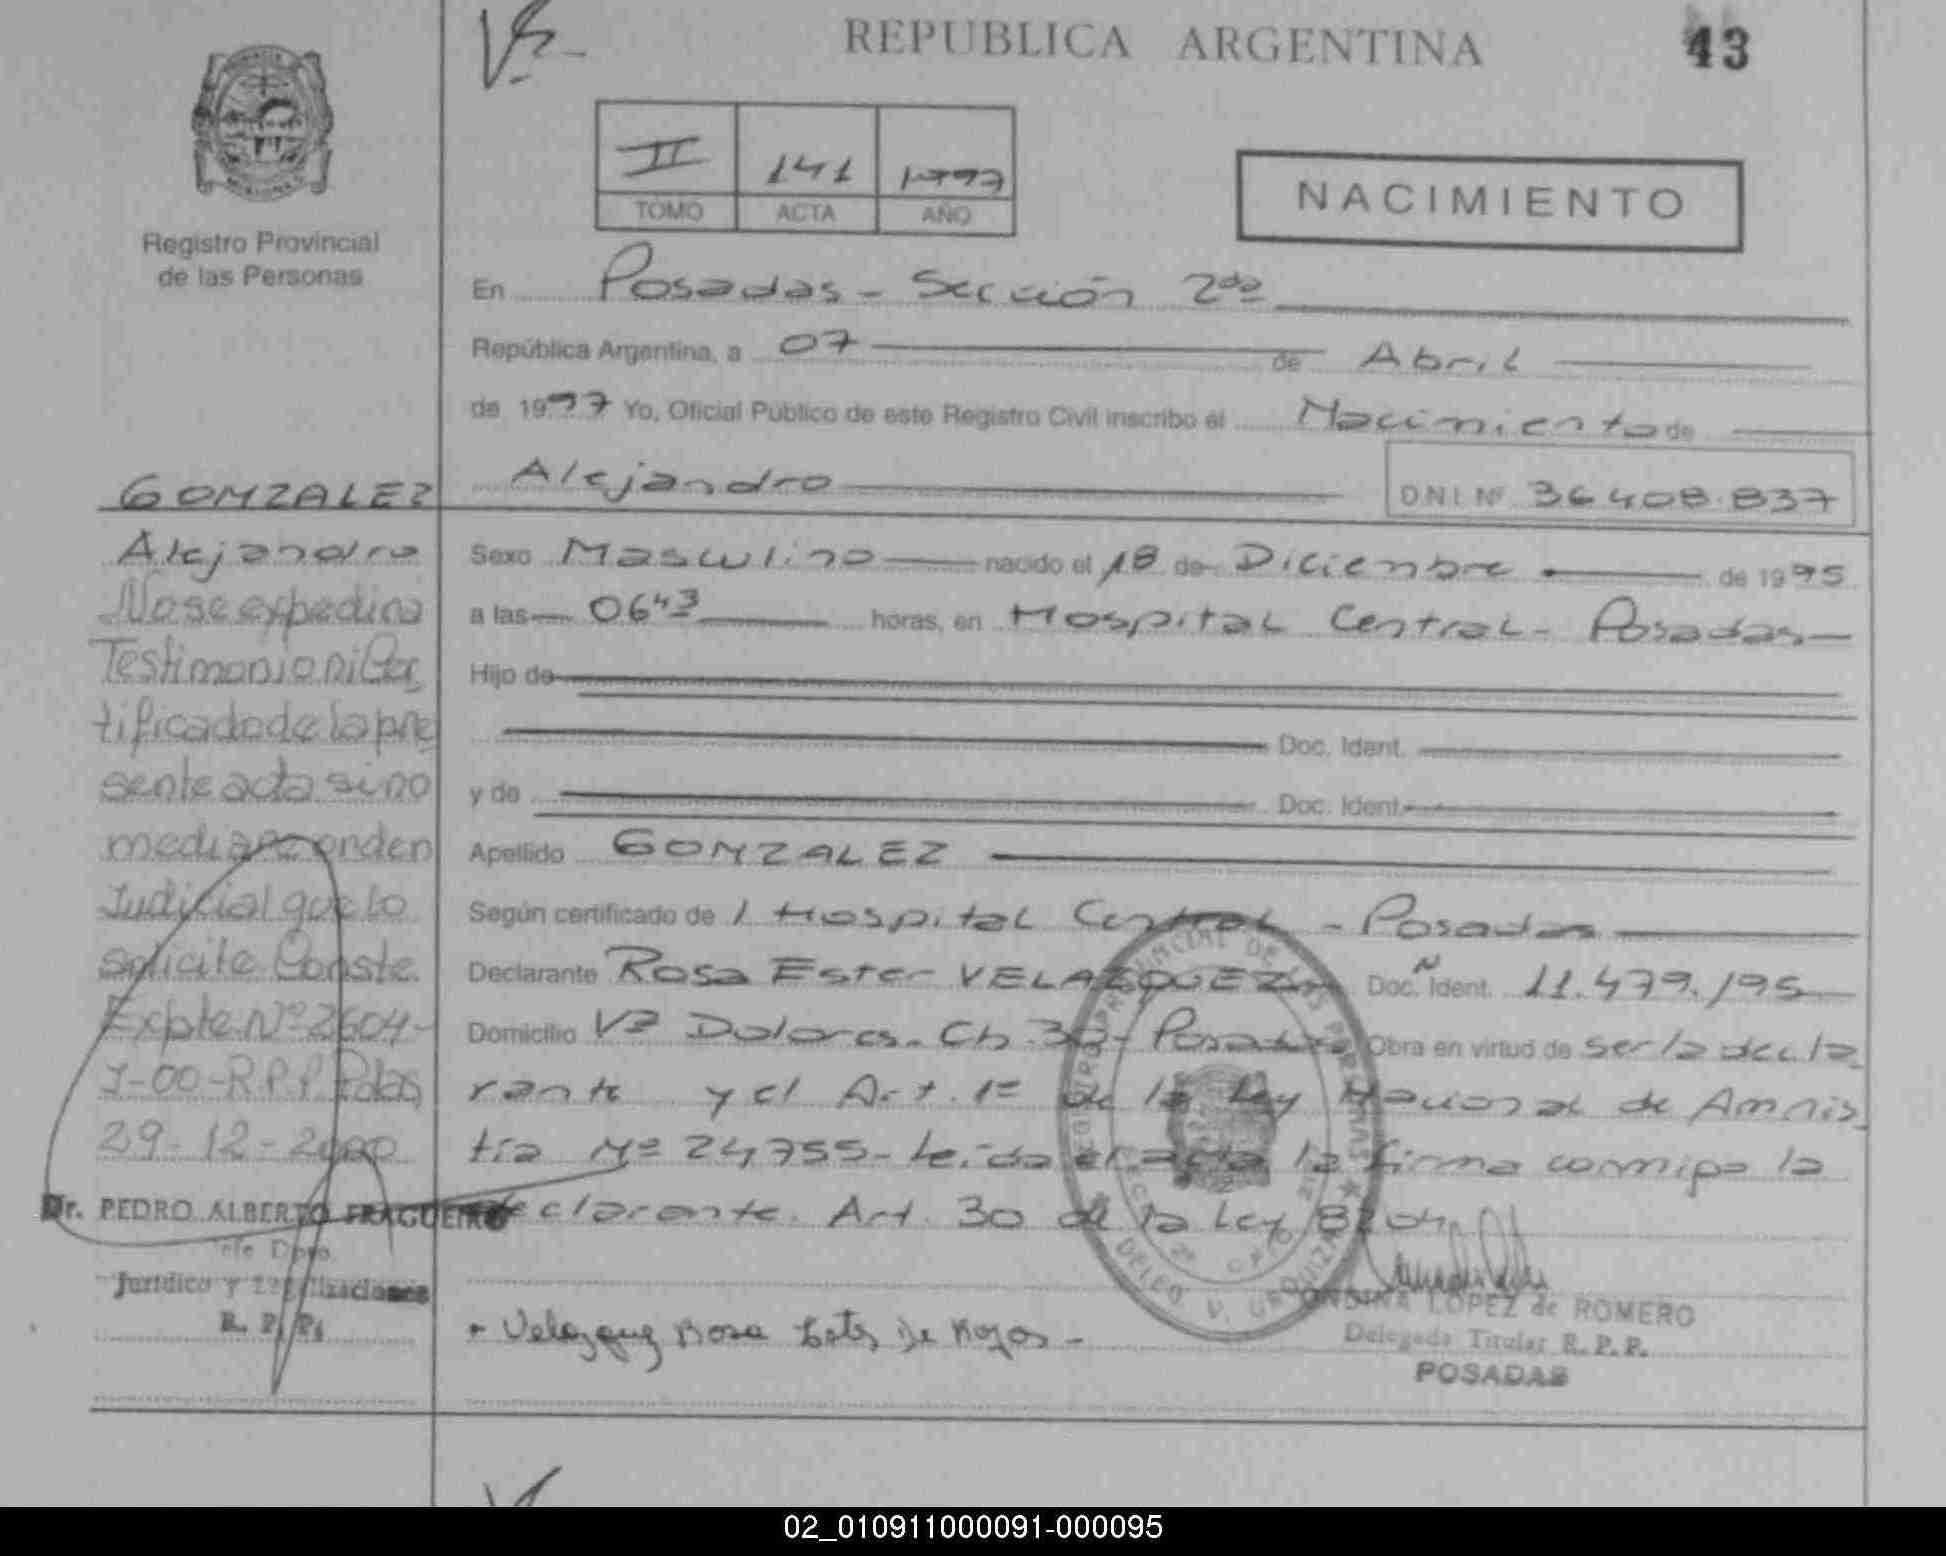 REPUBLICA ARGENTINA
43
II 141 1997
TOMO ACTA AÑO
NACIMIENTO
Registro Provincial
de las Personas
En Posadas - Sección 2da
República Argentina, a 07 de Abril
de 1997 Yo, Oficial Público de este Registro Civil inscribo el Nacimiento de
Alejandro D.N.I. Nº 36408.837
Sexo Masculino nacido el 18 de Diciembre de 1995
a las 0643 horas, en Hospital Central - Posadas
Hijo de
Doc. Ident.
y de Doc. Ident.
Apellido GONZALEZ
Según certificado de l Hospital Central - Posadas
Declarante Rosa Ester VELAZQUEZ Doc. Ident. 11.479.195
Domicilio Vª Dolores. Ch. 30 - Posadas Obra en virtud de ser la decla
rante y el Art. 1º de la Ley Nacional de Amnis
tía Nº 24755 - Leída el acta la firma conmigo la
declarante. Art. 30 de la Ley 8204
Velazquez Rosa Ester De Rojos -
ONDINA LOPEZ de ROMERO
Delegada Titular R.P.P.
POSADAS
GONZALEZ
Alejandro
No se expedira
Testimonio ni Cer
tificado de la pre
sente acta si no
mediare orden
Judicial que lo
solicite Conste.
Expte Nº 2604-
J-00-R.P.P. Pdas
29-12-2000
Dr. PEDRO ALBERTO FRAGUEIRO
Jefe Dpto.
Jurídico y Legalizaciones
R. P. P.
02_010911000091-000095